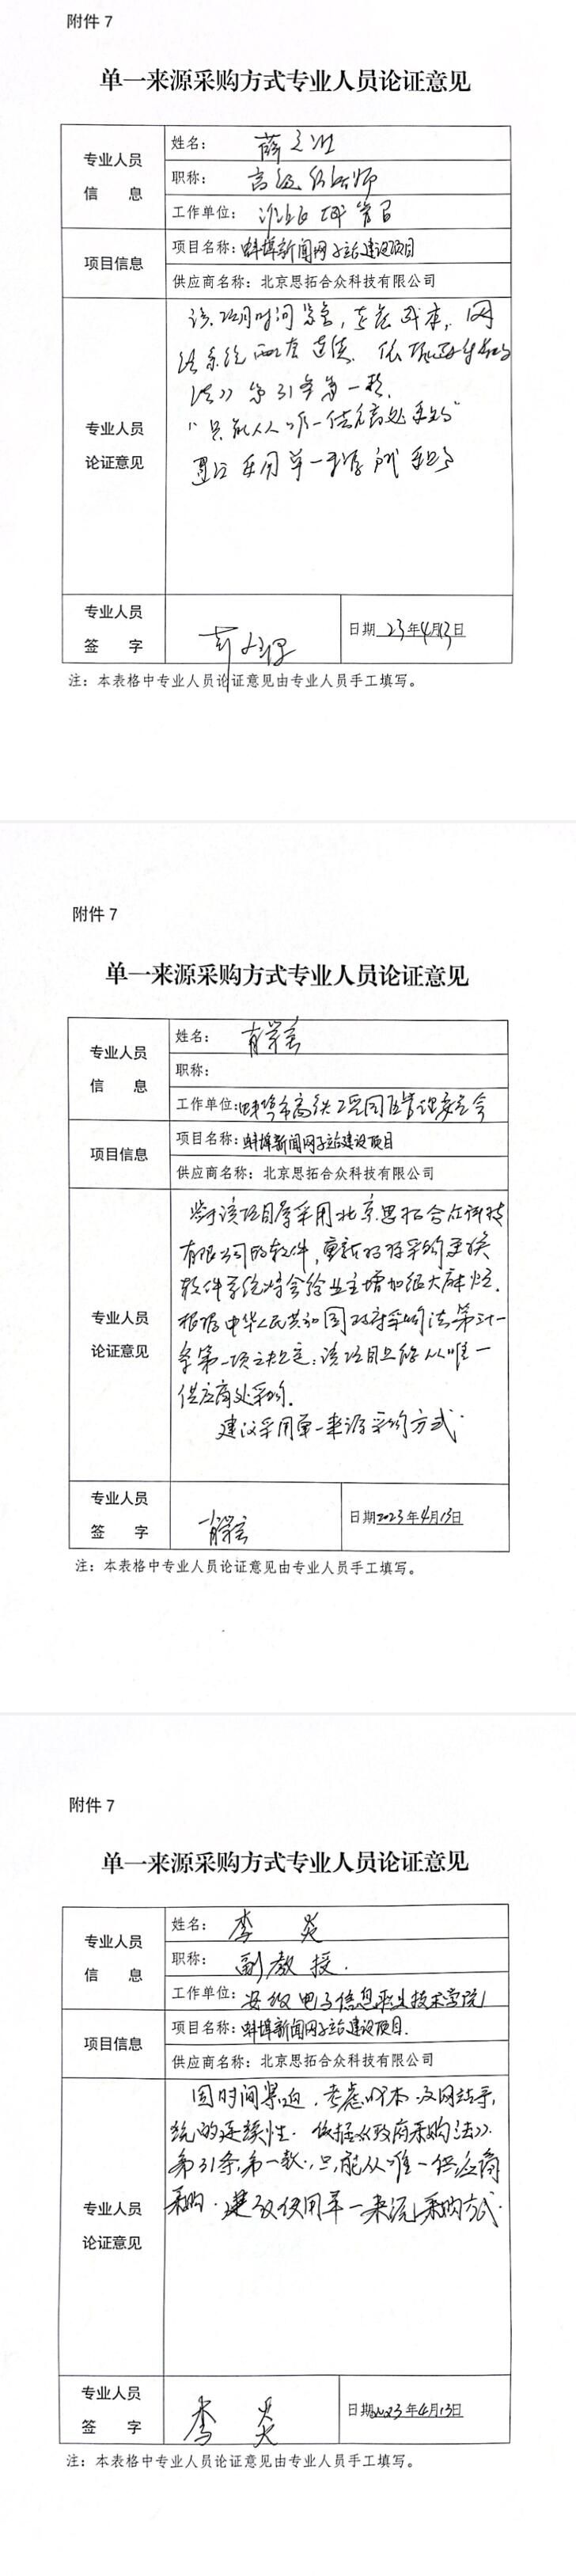 附件 7
单一来源采购方式专业人员论证意见
专业人员
信 息
姓名：薛
职称：高级
工作单位：
项目信息
项目名称：蚌埠新闻网子站建设项目
供应商名称：北京思拓合众科技有限公司
专业人员
论证意见
该项目时间紧急，考虑成本，网
站系统
法》第31条第一款
“只能从唯一供应商处采购”
建议采用单一来源方式采购
专业人员
签 字
日期 23年4月13日
注：本表格中专业人员论证意见由专业人员手工填写。
附件 7
单一来源采购方式专业人员论证意见
专业人员
信 息
姓名：肖
职称：
工作单位：蚌埠市高铁工园区管理委员会
项目信息
项目名称：蚌埠新闻网子站建设项目
供应商名称：北京思拓合众科技有限公司
专业人员
论证意见
鉴于该项目原采用北京思拓合众科技
有限公司的软件，重新采购更换
软件系统将会给业主增加很大麻烦．
根据中华人民共和国政府采购法第三十一
条第一项之规定：该项目只能从唯一
供应商处采购．
建议采用单一来源采购方式．
专业人员
签 字
肖
日期2023年4月13日
注：本表格中专业人员论证意见由专业人员手工填写。
附件 7
单一来源采购方式专业人员论证意见
专业人员
信 息
姓名：李 炎
职称：副教授．
工作单位：安徽电子信息职业技术学院
项目信息
项目名称：蚌埠新闻网子站建设项目．
供应商名称：北京思拓合众科技有限公司
专业人员
论证意见
因时间紧迫．考虑成本及网站系
统的连续性．依据《政府采购法》．
第31条，第一款．只能从唯一供应商
采购．建议使用单一来源采购方式．
专业人员
签 字
李 炎
日期2023年4月13日
注：本表格中专业人员论证意见由专业人员手工填写。